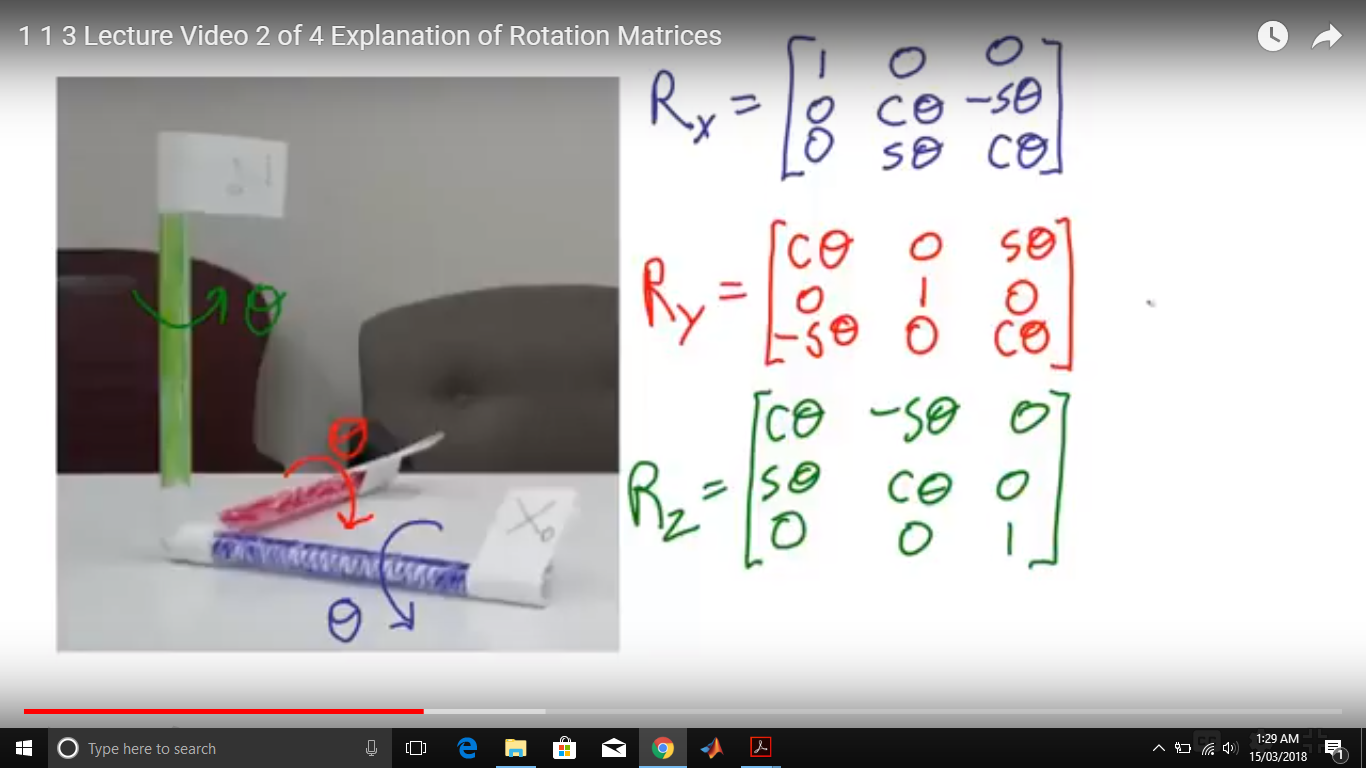 1 1 3 Lecture Video 2 of 4 Explanation of Rotation Matrices
Rx = [1 0 0
0 cθ -sθ
0 sθ cθ]
θ
θ
X₀
θ
Ry = [cθ 0 sθ
0 1 0
-sθ 0 cθ]
Rz = [cθ -sθ 0
sθ cθ 0
0 0 1]
Type here to search
1:29 AM
15/03/2018
1